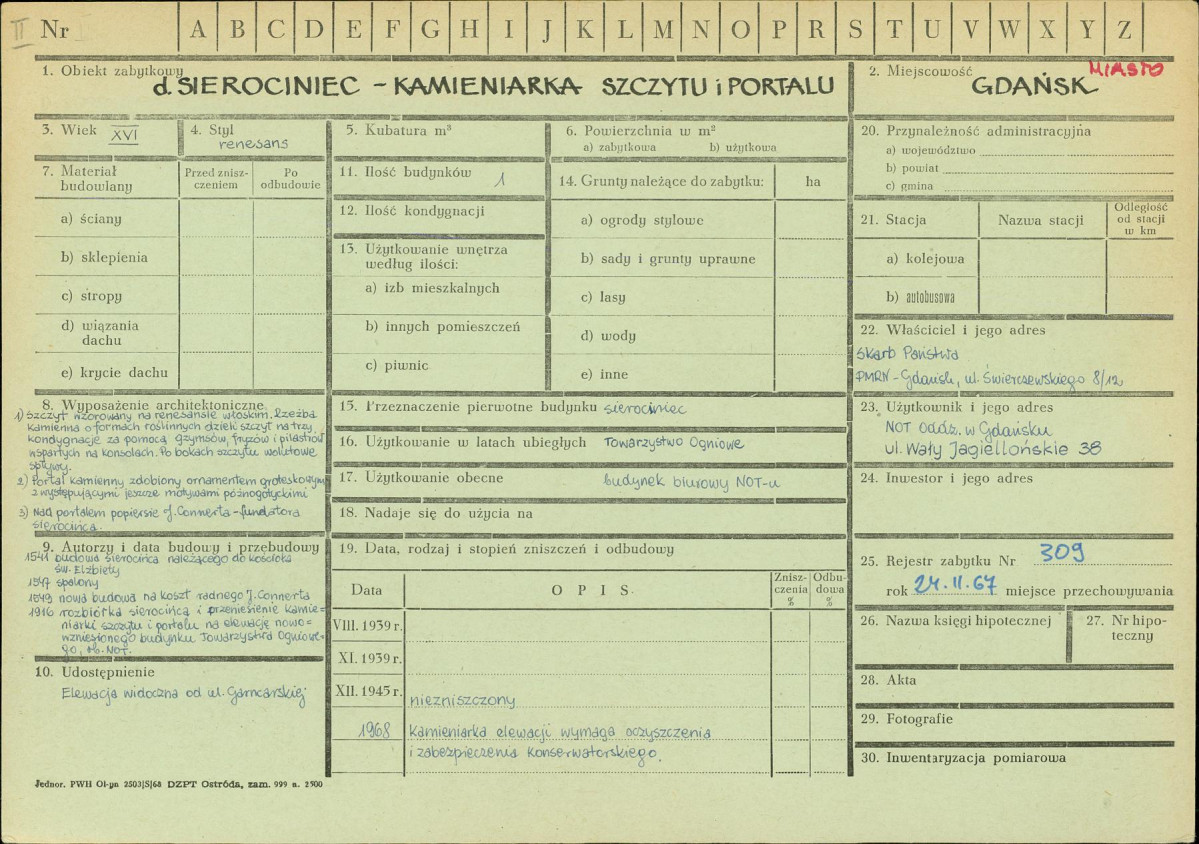 II Nr A B C D E F G H I J K L M N O P R S T U V W X Y Z
1. Obiekt zabytkowy
d. SIEROCINIEC – KAMIENIARKA SZCZYTU i PORTALU
2. Miejscowość MIASTO
GDAŃSK
3. Wiek XVI
4. Styl
renesans
5. Kubatura m³
6. Powierzchnia w m²
a) zabytkowa b) użytkowa
20. Przynależność administracyjna
a) województwo
b) powiat
c) gmina
7. Materiał
budowlany
Przed znisz-
czeniem
Po
odbudowie
a) ściany
b) sklepienia
c) stropy
d) wiązania
dachu
e) krycie dachu
11. Ilość budynków 1
12. Ilość kondygnacji
13. Użytkowanie wnętrza
według ilości:
a) izb mieszkalnych
b) innych pomieszczeń
c) piwnic
14. Grunty należące do zabytku: ha
a) ogrody stylowe
b) sady i grunty uprawne
c) lasy
d) wody
e) inne
21. Stacja Nazwa stacji
Odległość
od stacji
w km
a) kolejowa
b) autobusowa
22. Właściciel i jego adres
Skarb Państwa
PMRN – Gdańsk, ul. Świerczewskiego 8/12
8. Wyposażenie architektoniczne
1) Szczyt wzorowany na renesansie włoskim. Rzeźba
kamienna o formach roślinnych dzieli szczyt na trzy
kondygnacje za pomocą gzymsów, fryzów i pilastrów
wspartych na konsolach. Po bokach szczytu wolutowe
spływy.
2) Portal kamienny zdobiony ornamentem groteskowym
z występującymi jeszcze motywami późnogotyckimi
3) Nad portalem popiersie J. Connerta – fundatora
sierocińca.
15. Przeznaczenie pierwotne budynku sierociniec
16. Użytkowanie w latach ubiegłych Towarzystwo Ogniowe
17. Użytkowanie obecne budynek biurowy NOT-u
18. Nadaje się do użycia na
23. Użytkownik i jego adres
NOT Oddz. w Gdańsku
ul. Wały Jagiellońskie 38
24. Inwestor i jego adres
9. Autorzy i data budowy i przebudowy
1541 budowa sierocińca należącego do kościoła
św. Elżbiety
1547 spalony
1549 nowa budowa na koszt radnego J. Connerta
1916 rozbiórka sierocińca i przeniesienie kamie=
niarki szczytu i portalu na elewację nowo=
wzniesionego budynku Towarzystwa Ogniowe-
go, ob. NOT.
19. Data, rodzaj i stopień zniszczeń i odbudowy
Data OPIS.
Znisz-
czenia
%
Odbu-
dowa
%
VIII. 1939 r.
XI. 1939 r.
XII. 1945 r. niezniszczony
1968 Kamieniarka elewacji wymaga oczyszczenia
i zabezpieczenia konserwatorskiego.
25. Rejestr zabytku Nr 309
rok 24.II.67 miejsce przechowywania
26. Nazwa księgi hipotecznej
27. Nr hipo-
teczny
28. Akta
29. Fotografie
30. Inwentaryzacja pomiarowa
10. Udostępnienie
Elewacja widoczna od ul. Garncarskiej
Jednor. PWH Ol-yn 2503|S|68 DZPT Ostróda, zam. 999 n. 2500